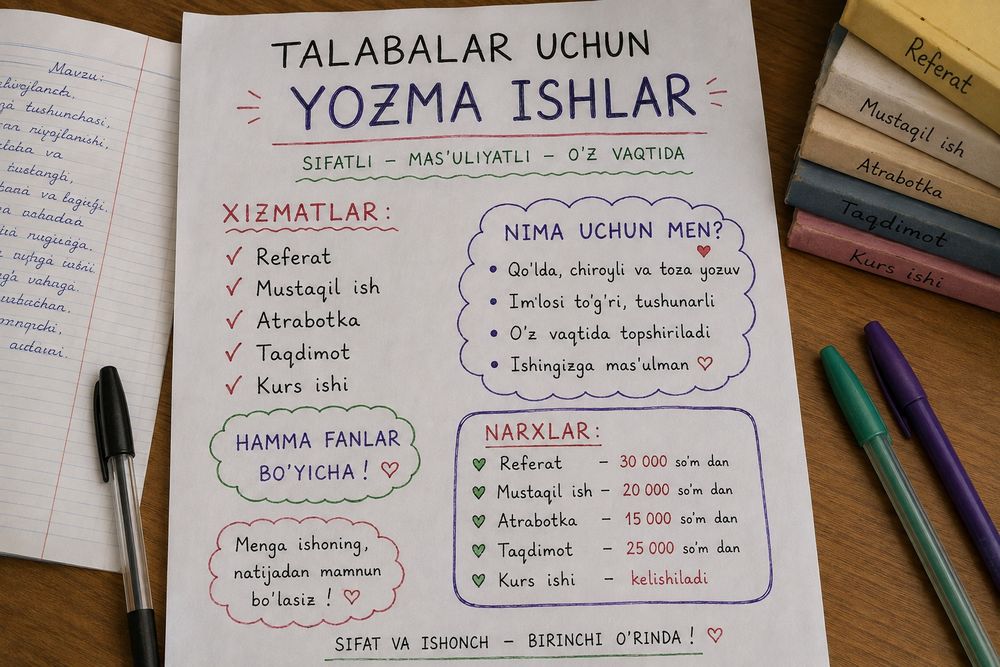 TALABALAR UCHUN
YOZMA ISHLAR
SIFATLI – MAS'ULIYATLI – O'Z VAQTIDA
XIZMATLAR:
✓ Referat
✓ Mustaqil ish
✓ Atrabotka
✓ Taqdimot
✓ Kurs ishi
NIMA UCHUN MEN?
• Qo'lda, chiroyli va toza yozuv
• Imlosi to'g'ri, tushunarli
• O'z vaqtida topshiriladi
• Ishingizga mas'ulman
HAMMA FANLAR
BO'YICHA!
NARXLAR:
Referat – 30 000 so'm dan
Mustaqil ish – 20 000 so'm dan
Atrabotka – 15 000 so'm dan
Taqdimot – 25 000 so'm dan
Kurs ishi – kelishiladi
Menga ishoning,
natijadan mamnun
bo'lasiz!
SIFAT VA ISHONCH – BIRINCHI O'RINDA!
Mavzu:
tushunchasi,
va
va
Referat
Mustaqil ish
Atrabotka
Taqdimot
Kurs ishi